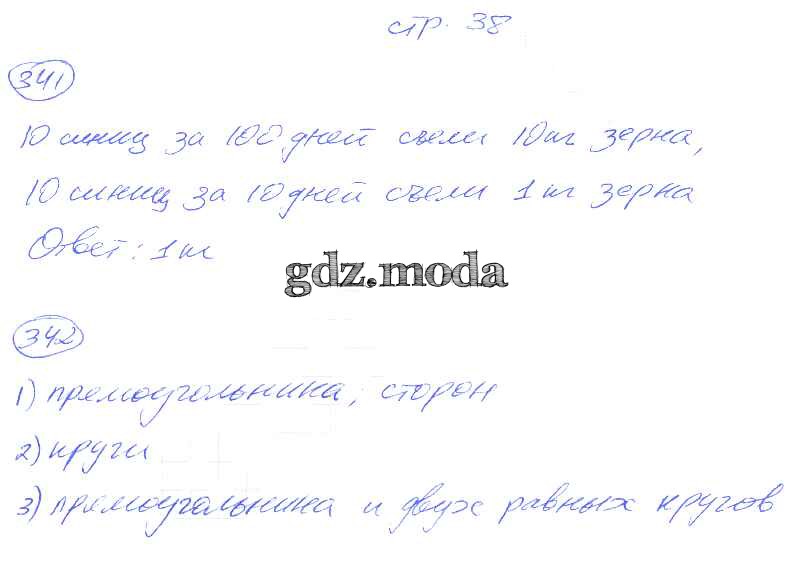 стр. 38
341
10 синиц за 100 дней съели 10 кг зерна,
10 синиц за 10 дней съели 1 кг зерна
Ответ: 1 кг
gdz.moda
342
1) прямоугольника, сторон
2) круги
3) прямоугольника и двух равных кругов